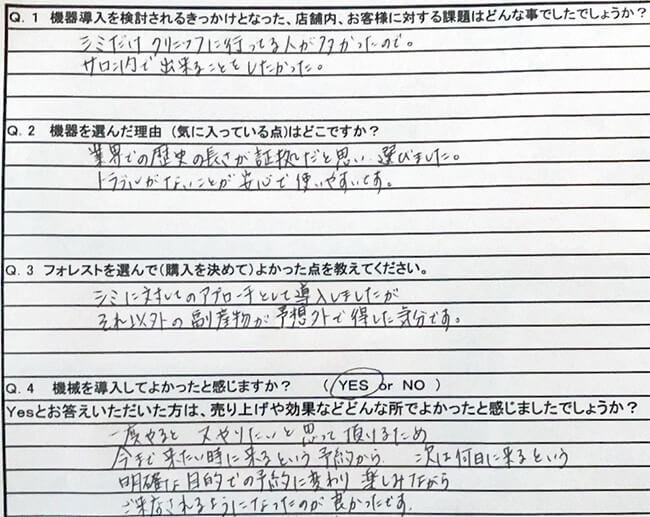 Q. 1 機器導入を検討されるきっかけとなった、店舗内、お客様に対する課題はどんな事でしたでしょうか?
シミだけ クリニックに行ってる人が多かったので。
サロン内で出来ることをしたかった。
Q. 2 機器を選んだ理由 (気に入っている点)はどこですか?
業界での歴史の長さが証拠だと思い 選びました。
トラブルがないことが安心で使いやすいです。
Q. 3 フォレストを選んで(購入を決めて)よかった点を教えてください。
シミに対してのアプローチとして導入しましたが
それ以外の副産物が予想外で得した気分です。
Q. 4 機械を導入してよかったと感じますか? ( YES or NO )
Yesとお答えいただいた方は、売り上げや効果などどんな所でよかったと感じましたでしょうか?
一度やると 又やりたいと思って頂けるため
今まで来たい時に来るという予約から 次は何日に来るという
明確な目的での予約に変わり 楽しみながら
ご来店されるようになったのが良かったです。